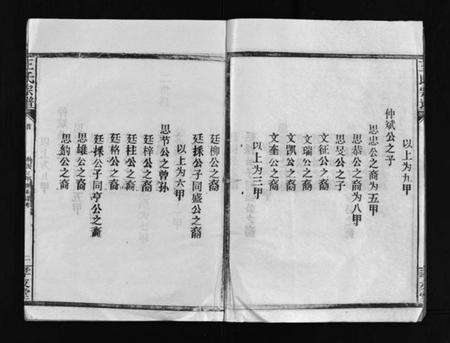 以上為九甲
仲斌公之子
思忠公之裔為五甲
思恭公之裔為八甲
思旻公之子
文征公之裔
文瑞公之裔
文凱公之裔
文奎公之裔
以上為三甲
廷柳公之裔
廷採公子同盛公之裔
以上為六甲
思节公之曾孫
廷梓公之裔
廷柱公之裔
廷格公之裔
廷採公子同亨公之裔
思雄公之裔
思鹤公之裔
王氏宗譜
首